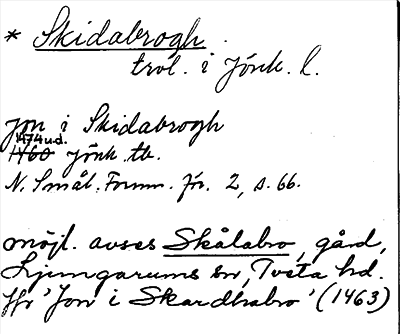 * Skidabrogh.
trol. i Jönk. l.
Jon i Skidabrogh
1474 ud.
1460 Jönk. tb.
N. Smål. Fornm. för. 2, s. 66.
möjl. avses Skålabro, gård,
Ljungarums sn, Tveta hd.
Jfr 'Jon i Skardhabro' (1463)